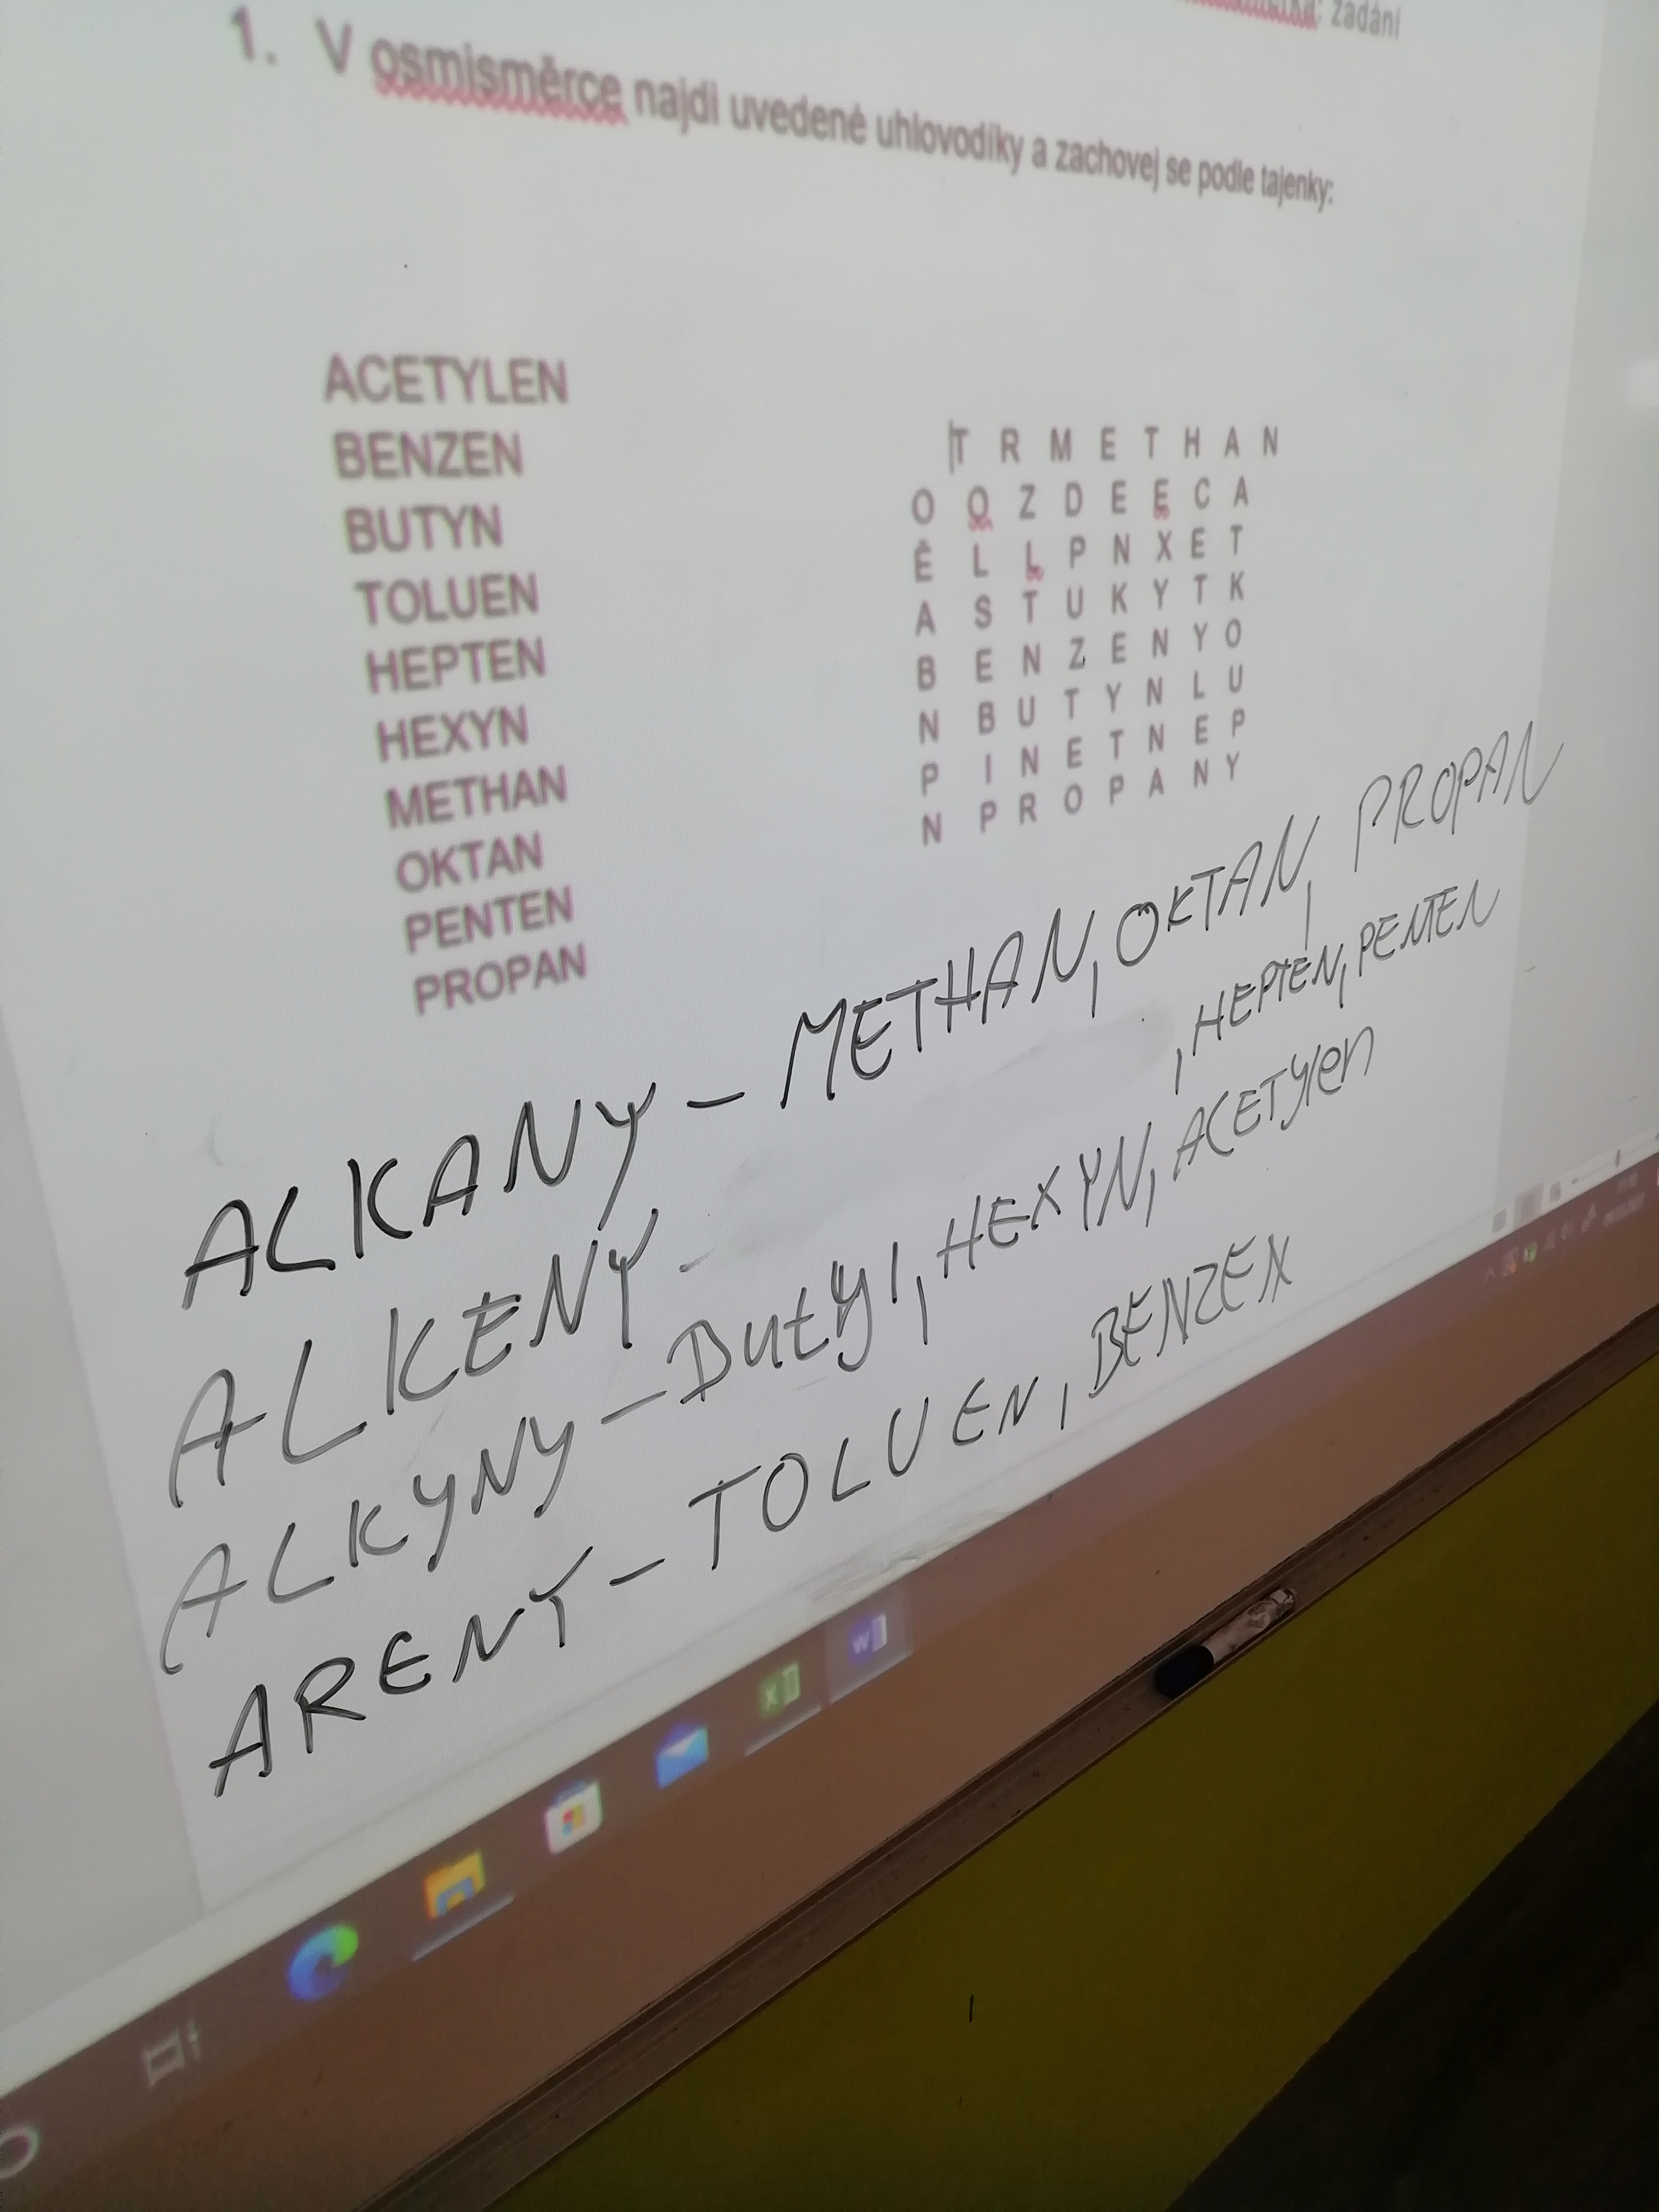 zadání
1. V osmisměrce najdi uvedené uhlovodíky a zachovej se podle tajenky:
ACETYLEN
BENZEN
BUTYN
TOLUEN
HEPTEN
HEXYN
METHAN
OKTAN
PENTEN
PROPAN
T R M E T H A N
O O Z D E E C A
Ě L L P N X E T
A S T U K Y T K
B E N Z E N Y O
N B U T Y N L U
P I N E T N E P
N P R O P A N Y
ALKANY - METHAN, OKTAN, PROPAN
ALKENY - , HEPTEN, PENTEN
ALKYNY - Butyl, HEXYN, ACETYlen
ARENY - TOLUEN, BENZEN